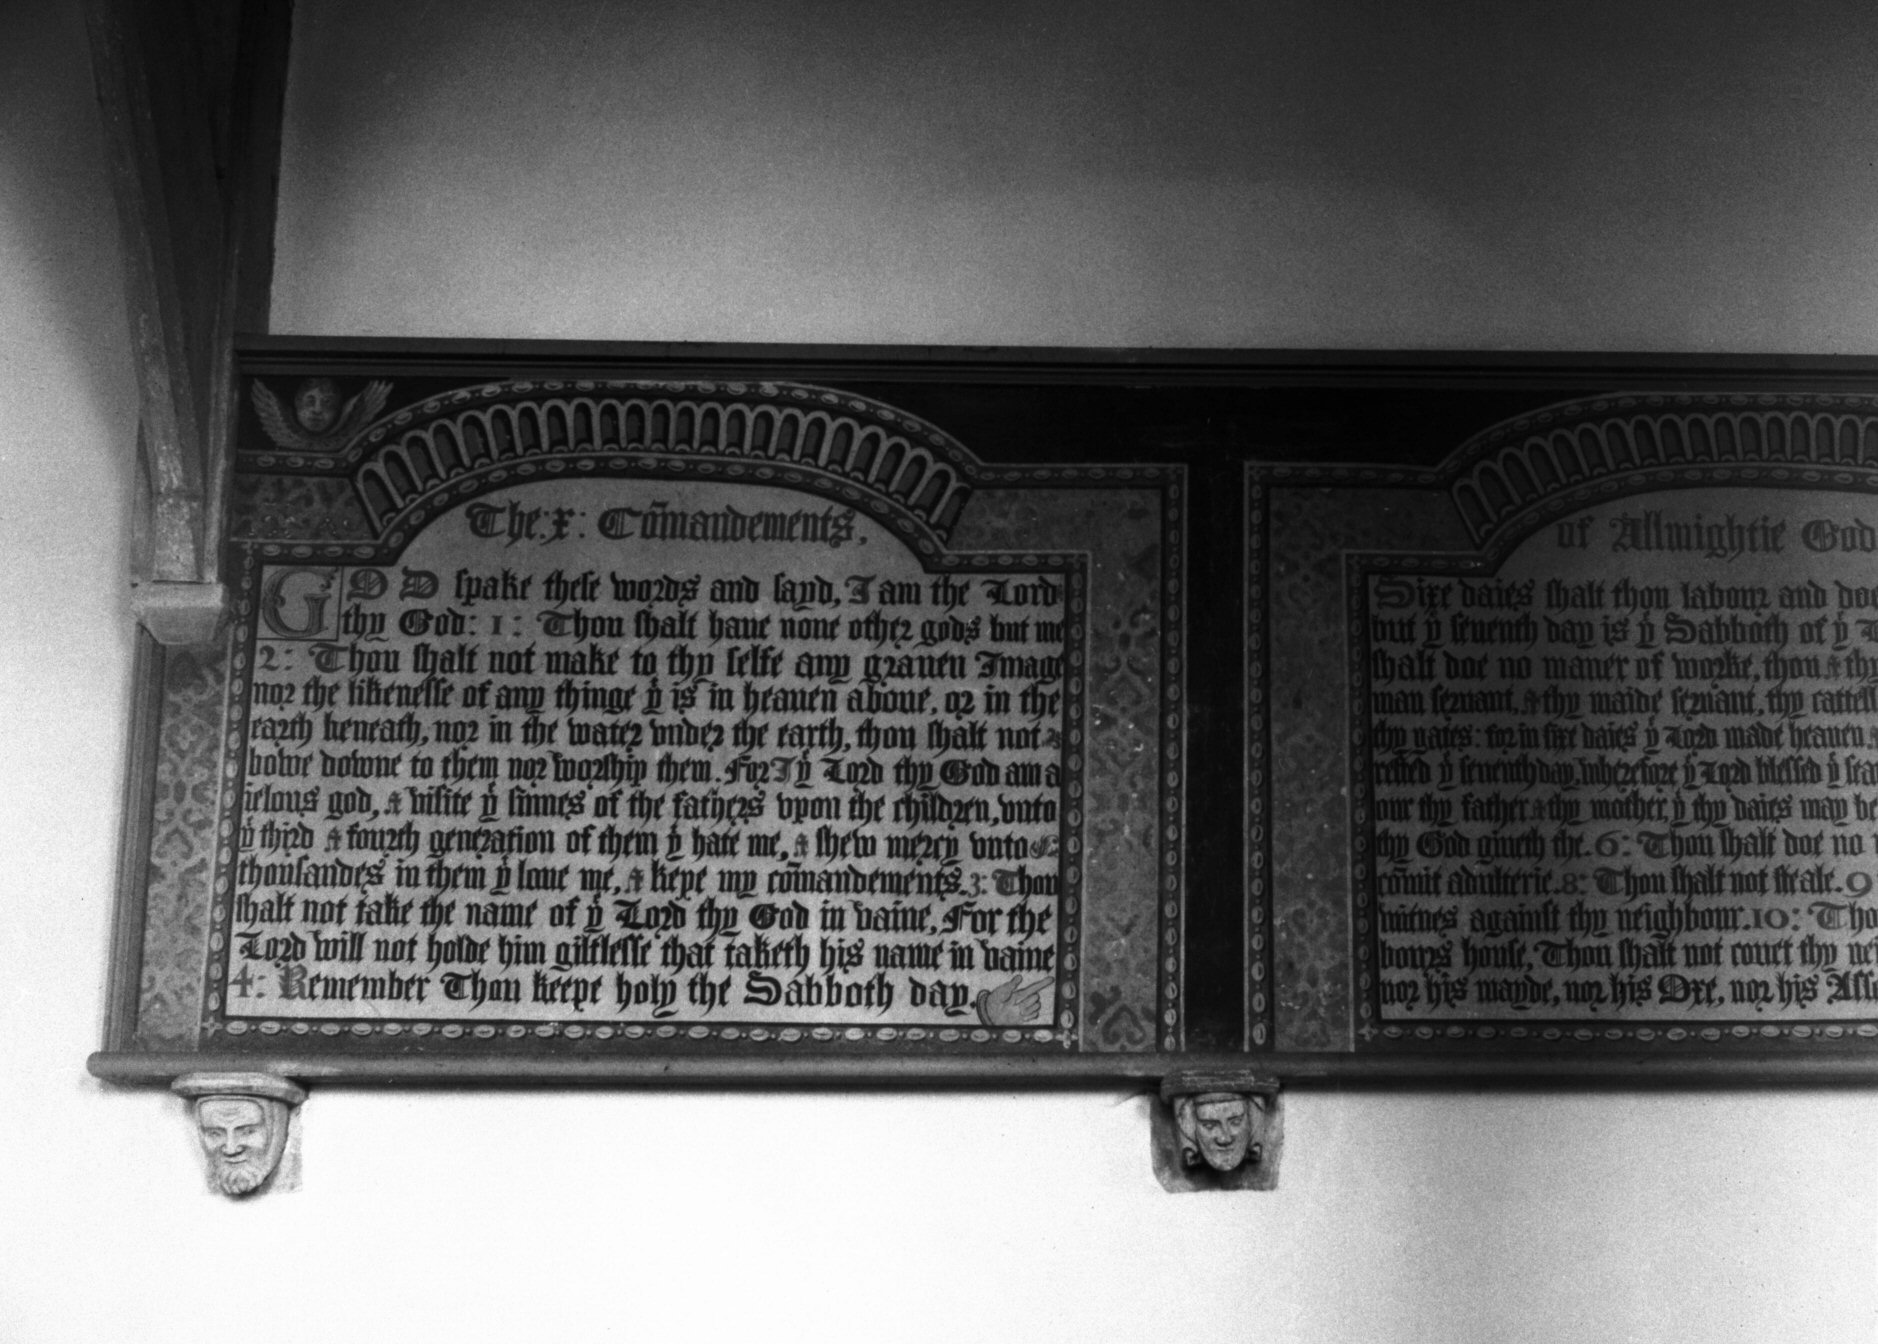 The :x: Cõmandements,
GOD spake these words and sayd, I am the Lord
thy God: 1: Thou shalt haue none other gods but me
2: Thou shalt not make to thy selfe any grauen Image
nor the likenesse of any thinge yͭ is in heauen aboue, or in the
earth beneath, nor in the water vnder the earth, thou shalt not
bowe downe to them nor worship them. For I yͤ Lord thy God am a
ielous god, & visite yͤ sinnes of the fathers vpon the children, vnto
yͤ third & fourth generation of them yͭ hate me, & shew mercy vnto
thousandes in them yͭ loue me, & kepe my cõmandements. 3: Thou
shalt not take the name of yͤ Lord thy God in vaine, For the
Lord will not holde him giltlesse that taketh his name in vaine
4: Remember Thou keepe holy the Sabboth day.
of Allmightie God
Sixe daies shalt thou labour and doe
but yͤ seuenth day is yͤ Sabboth of yͤ
shalt doe no maner of worke, thou & thy
man seruant, & thy maide seruant, thy cattell
thy gates: for in sixe daies yͤ Lord made heauen &
rested yͤ seuenth day, wherefore yͤ Lord blessed yͤ
our thy father & thy mother, yͭ thy daies may be
thy God giueth the. 6: Thou shalt doe no
cõmit adulterie. 8: Thou shalt not steale. 9
witnes against thy neighbour. 10: Thou
bours house, Thou shalt not couet thy nei
nor his mayde, nor his Oxe, nor his Asse